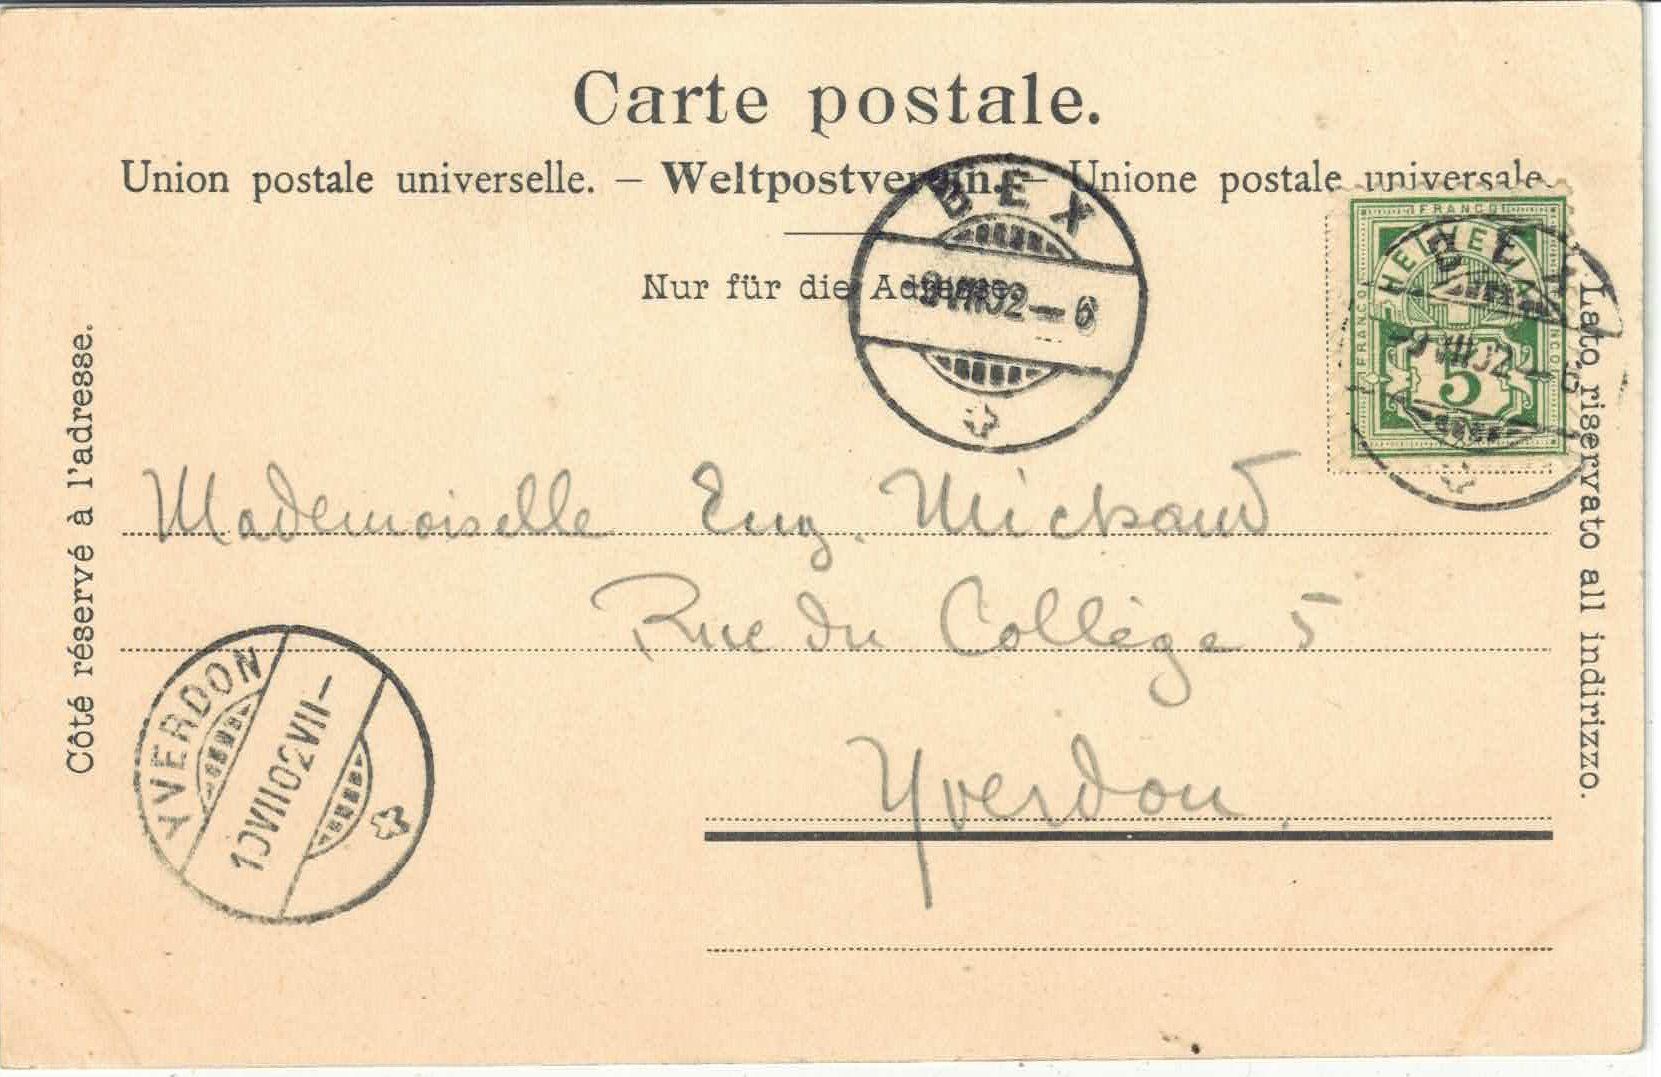 Carte postale.
Union postale universelle. – Weltpostverein. – Unione postale universale.
Nur für die Adresse.
Côté réservé à l'adresse.
Lato riservato all indirizzo.
BEX
9 VII 02 – 6
FRANCO
HELVETIA
FRANCO
FRANCO
5
BEX
9 VII 02 – 6
Mademoiselle Eug. Michaud
Rue du Collège 5
Yverdon.
YVERDON
10 VII 02 VII –